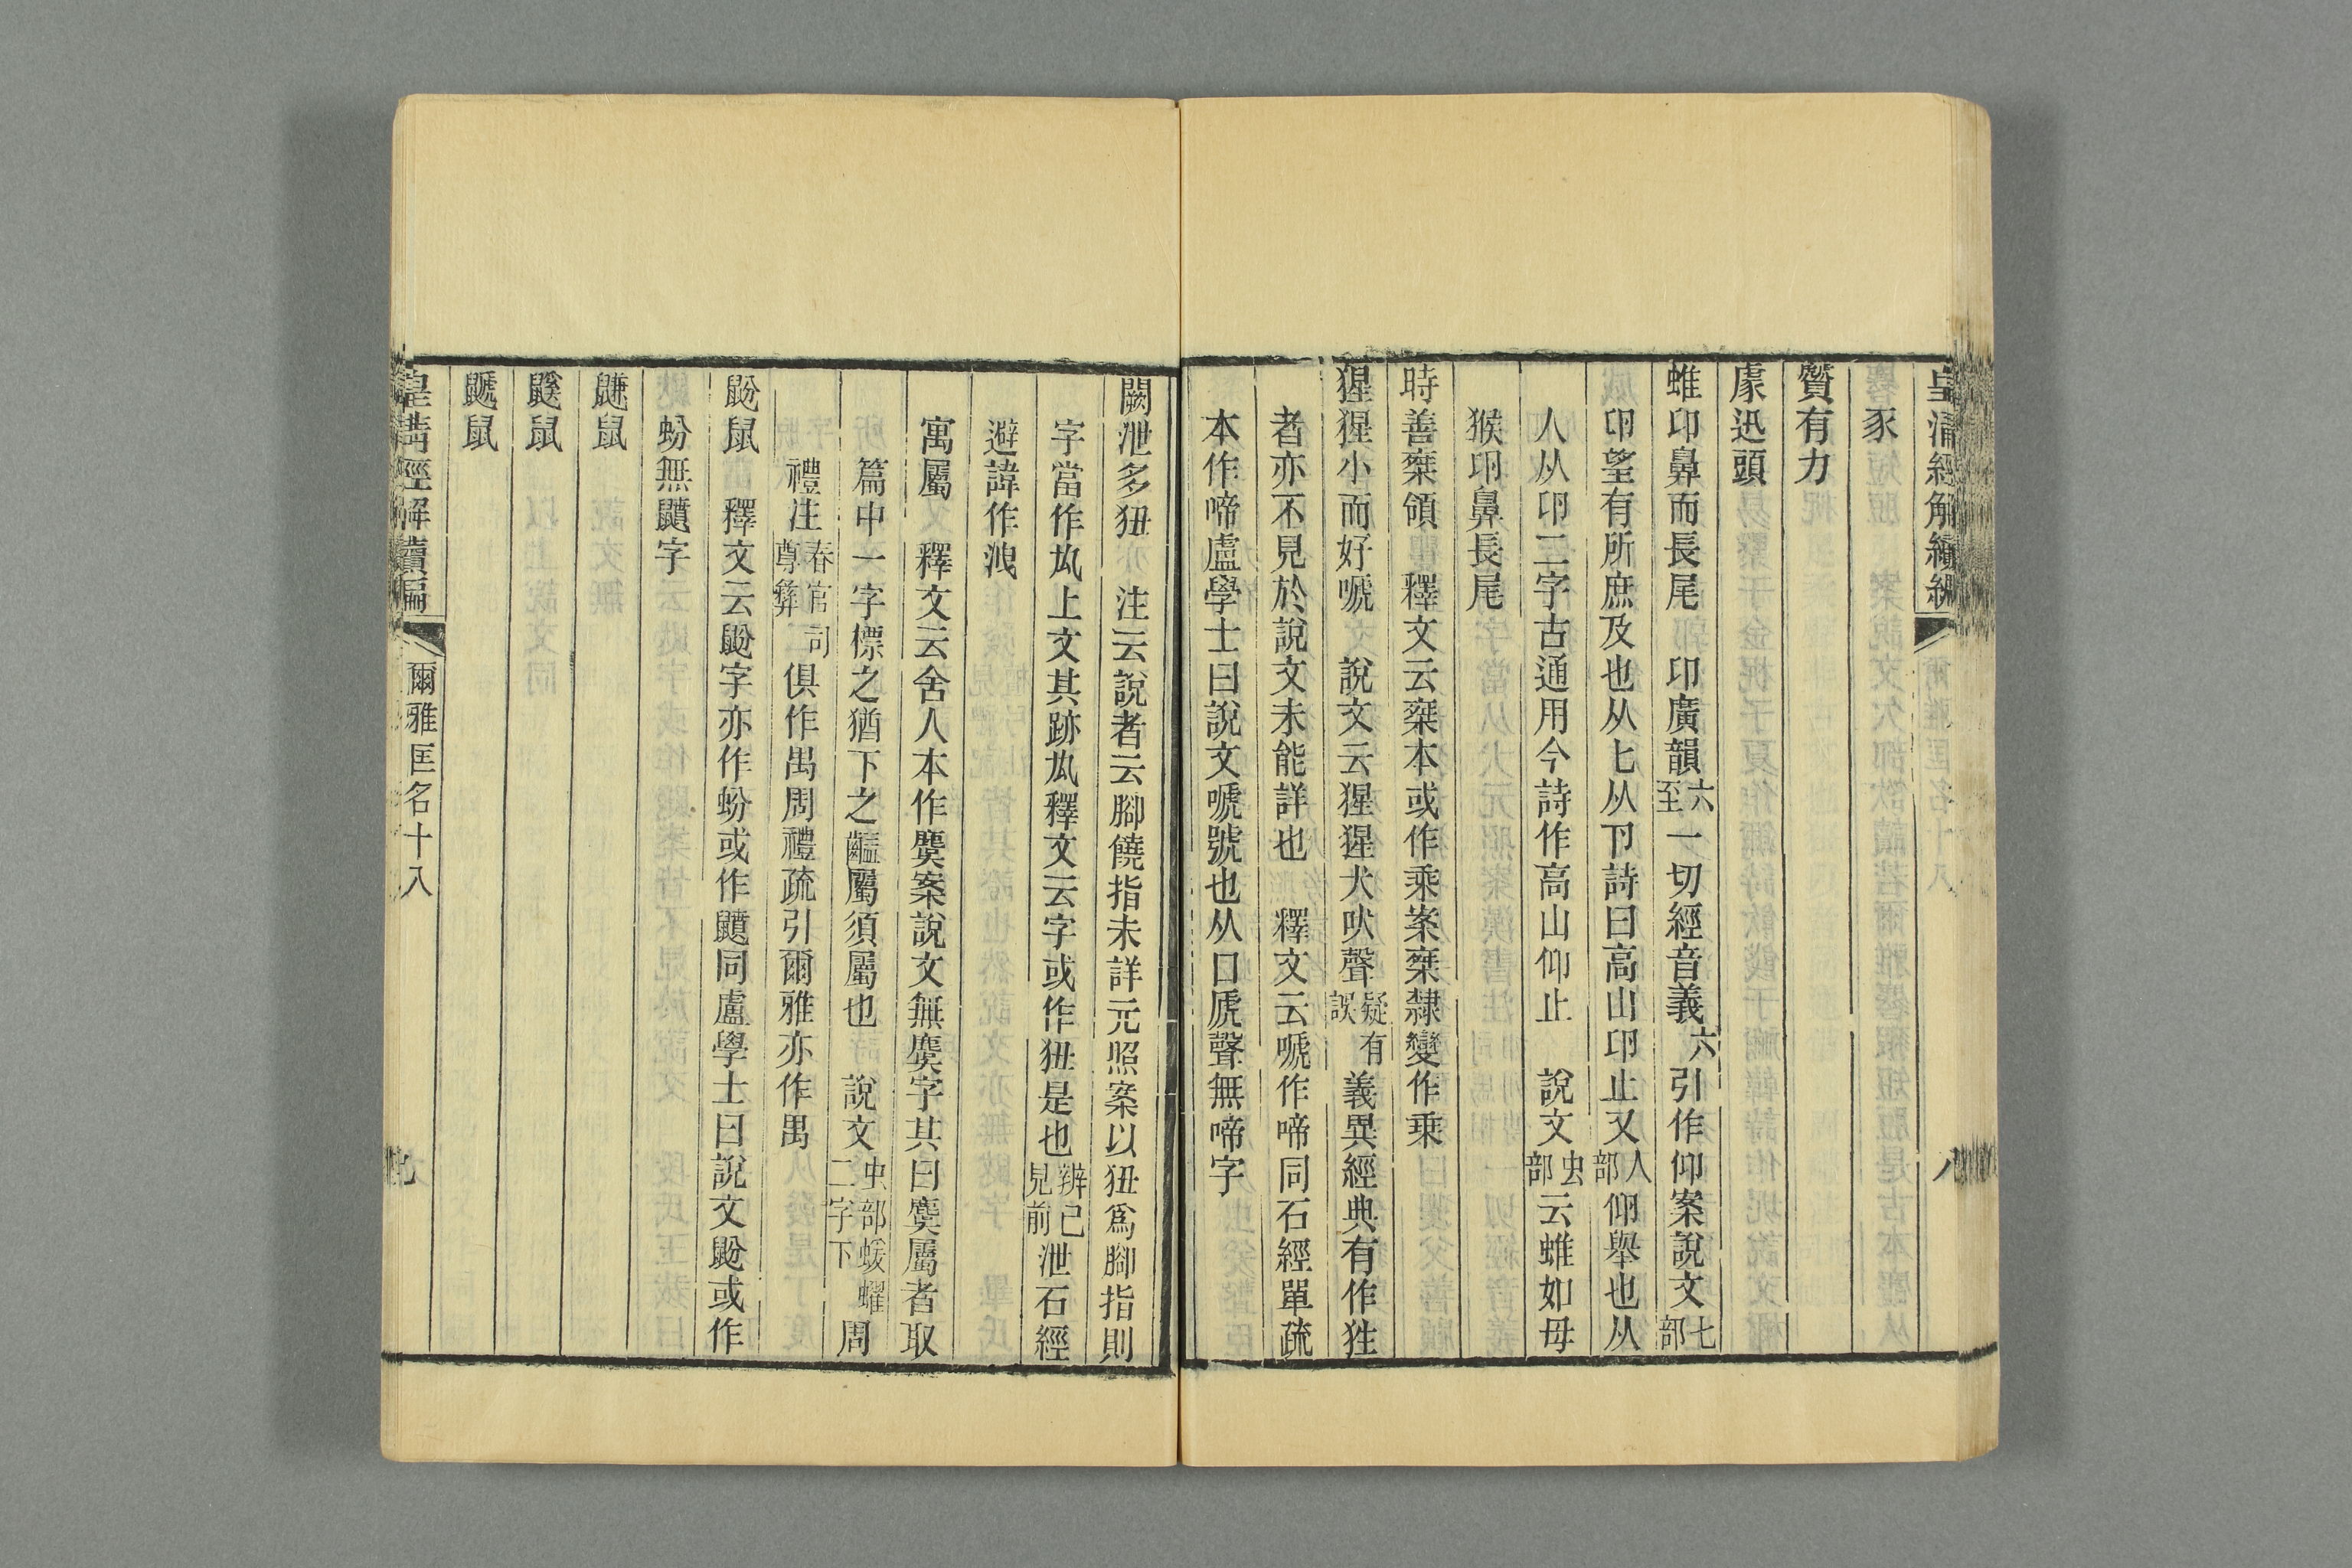 皇清經解續編 八
豕
贙有力
豦迅頭
蜼卬鼻而長尾 卬廣韻六至一切經音義六引作仰案說文七部
卬望有所庶及也从匕从卪詩曰高山卬止又人部仰舉也从
人从卬二字古通用今詩作高山仰止 說文虫部云蜼如母
猴卬鼻長尾
時善椉領 釋文云椉本或作乘案椉隸變作乗
猩猩小而好嗁 說文云猩猩犬吠聲疑有誤義異經典有作狌
者亦不見於說文未能詳也 釋文云嗁作啼同石經單疏
本作啼盧學士曰說文嗁號也从口虒聲無啼字
闕泄多狃 注云說者云腳饒指未詳元照案以狃爲腳指則
字當作厹上文其跡厹釋文云字或作狃是也辨已見前泄石經
避諱作洩
寓屬 釋文云舍人本作麌案說文無麌字其曰麌屬者取
篇中一字標之猶下之齸屬須屬也 說文虫部蝯蠗二字下周
禮注春官司尊彝俱作禺周禮疏引爾雅亦作禺
鼢鼠 釋文云鼢字亦作蚡或作鼢同盧學士曰說文鼢或作
蚡無鼢字
鼸鼠
鼷鼠
鼶鼠
皇清經解續編 爾雅匡名十八 九